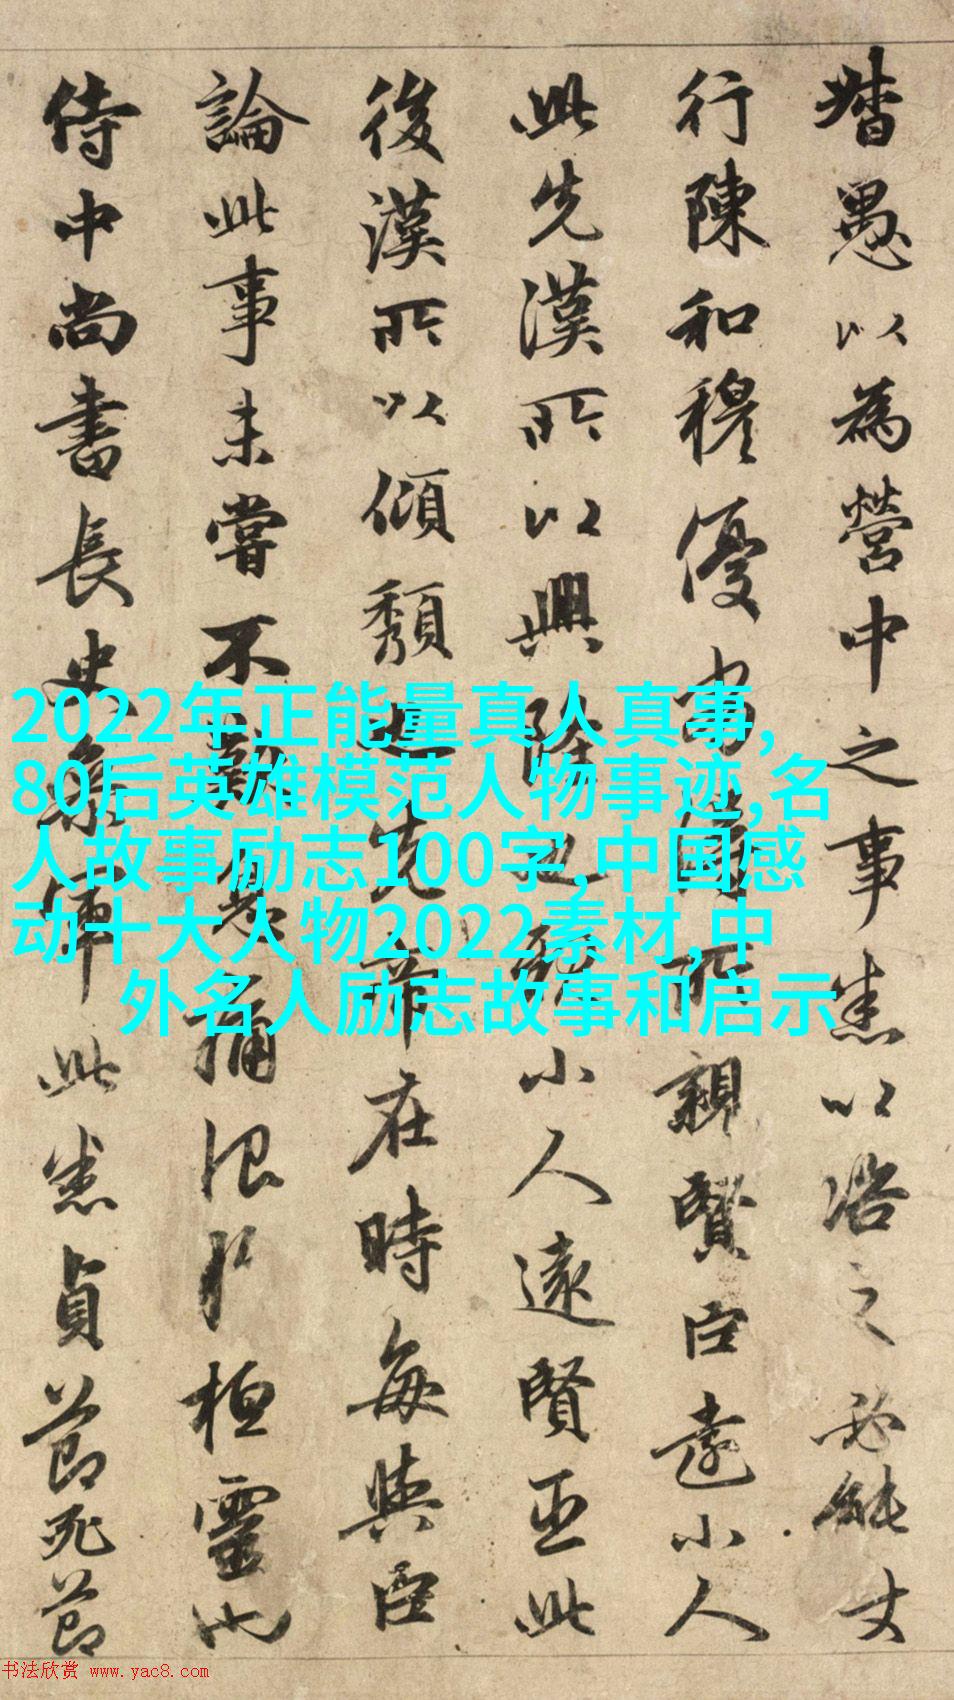 督愚以為營中之事悉以諮之必能使
行陳和穆優劣得所親賢臣遠小人
此先漢所以興隆也親小人遠賢臣此
後漢所以傾頹也先帝在時每與臣
論此事未嘗不歎息痛恨於桓靈也
侍中尚書長史參軍此悉貞節死節
2022年正能量真人真事,
80后英雄模范人物事迹,名
人故事励志100字,中国感
动十大人物2022素材,中
外名人励志故事和启示
书法欣赏 www.yac8.com